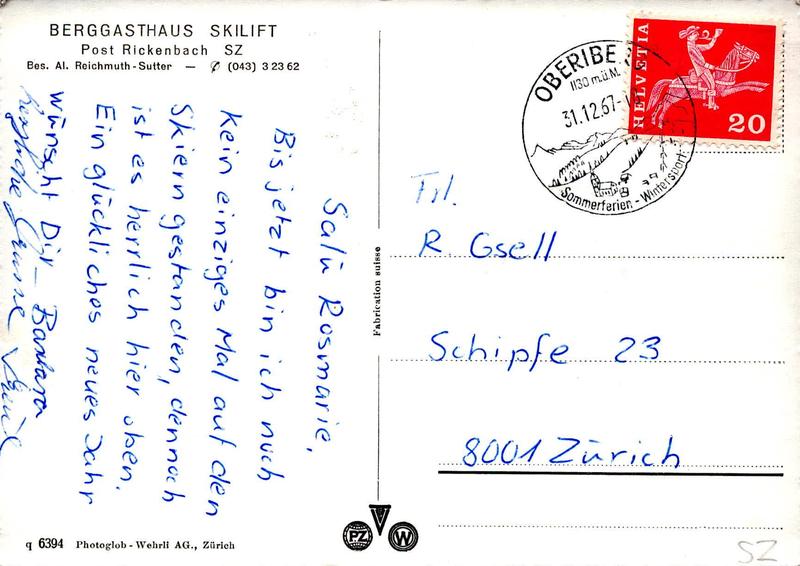 BERGGASTHAUS SKILIFT
Post Rickenbach SZ
Bes. Al. Reichmuth-Sutter — (043) 3 23 62
Salü Rosmarie,
Bis jetzt bin ich noch
kein einziges Mal auf den
Skiern gestanden, dennoch
ist es herrlich hier oben.
Ein glückliches neues Jahr
wünscht Dir – Barbara
herzliche Grüsse
Fabrication suisse
q 6394 Photoglob-Wehrli AG., Zürich
PZ W
OBERIBE
1130 m.ü.M.
31.12.67
Sommerferien - Wintersport
HELVETIA
20
Frl.
R. Gsell
Schipfe 23
8001 Zürich
SZ